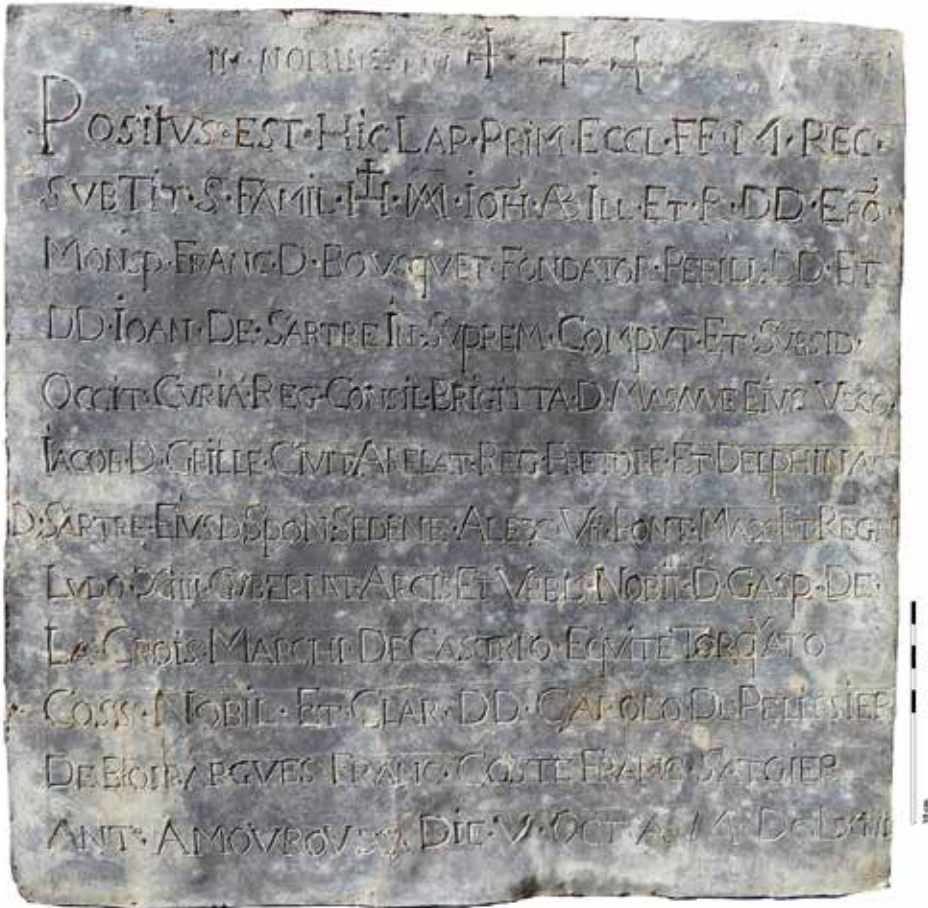 IN · NOMINE
POSITVS · EST · HIC LAP · PRIM · ECCL · FF · REC ·
SVB TIT · S · FAMIL · IOH · ILL · ET · R · DD ·
MONSP · FRANC · D · BOVSQVET · FONDATOR · PERILL · DD · ET
DD · IOAN · DE · SARTRE IN · SVPREM · COMPVT · ET · SVBSID ·
OCCIT · CVRIA · REG · CONSIL · BRIGITTA · D · EIVS
IACOB · D · GRILLE · CIVIT · ARELAT · REG · PRETORE · ET
D · SARTRE · EIVSD · SPON · SEDENE · ALEX · PONT · MAX · ET
LVDO · XIIII · GVBERNAT · ARCIS · ET VRBIS · NOBIL · D GASP · DE ·
LA · CROIS · DE CASTRIO · EQVITE TORQVATO
COSS · NOBIL · ET · CLAR · DD · CAROLO DE PELISSIER
DE BOIRARGVES FRANC · COSTE FRANC · SATGIER
ANT · AMOVROVSX · DIE · V · OCT